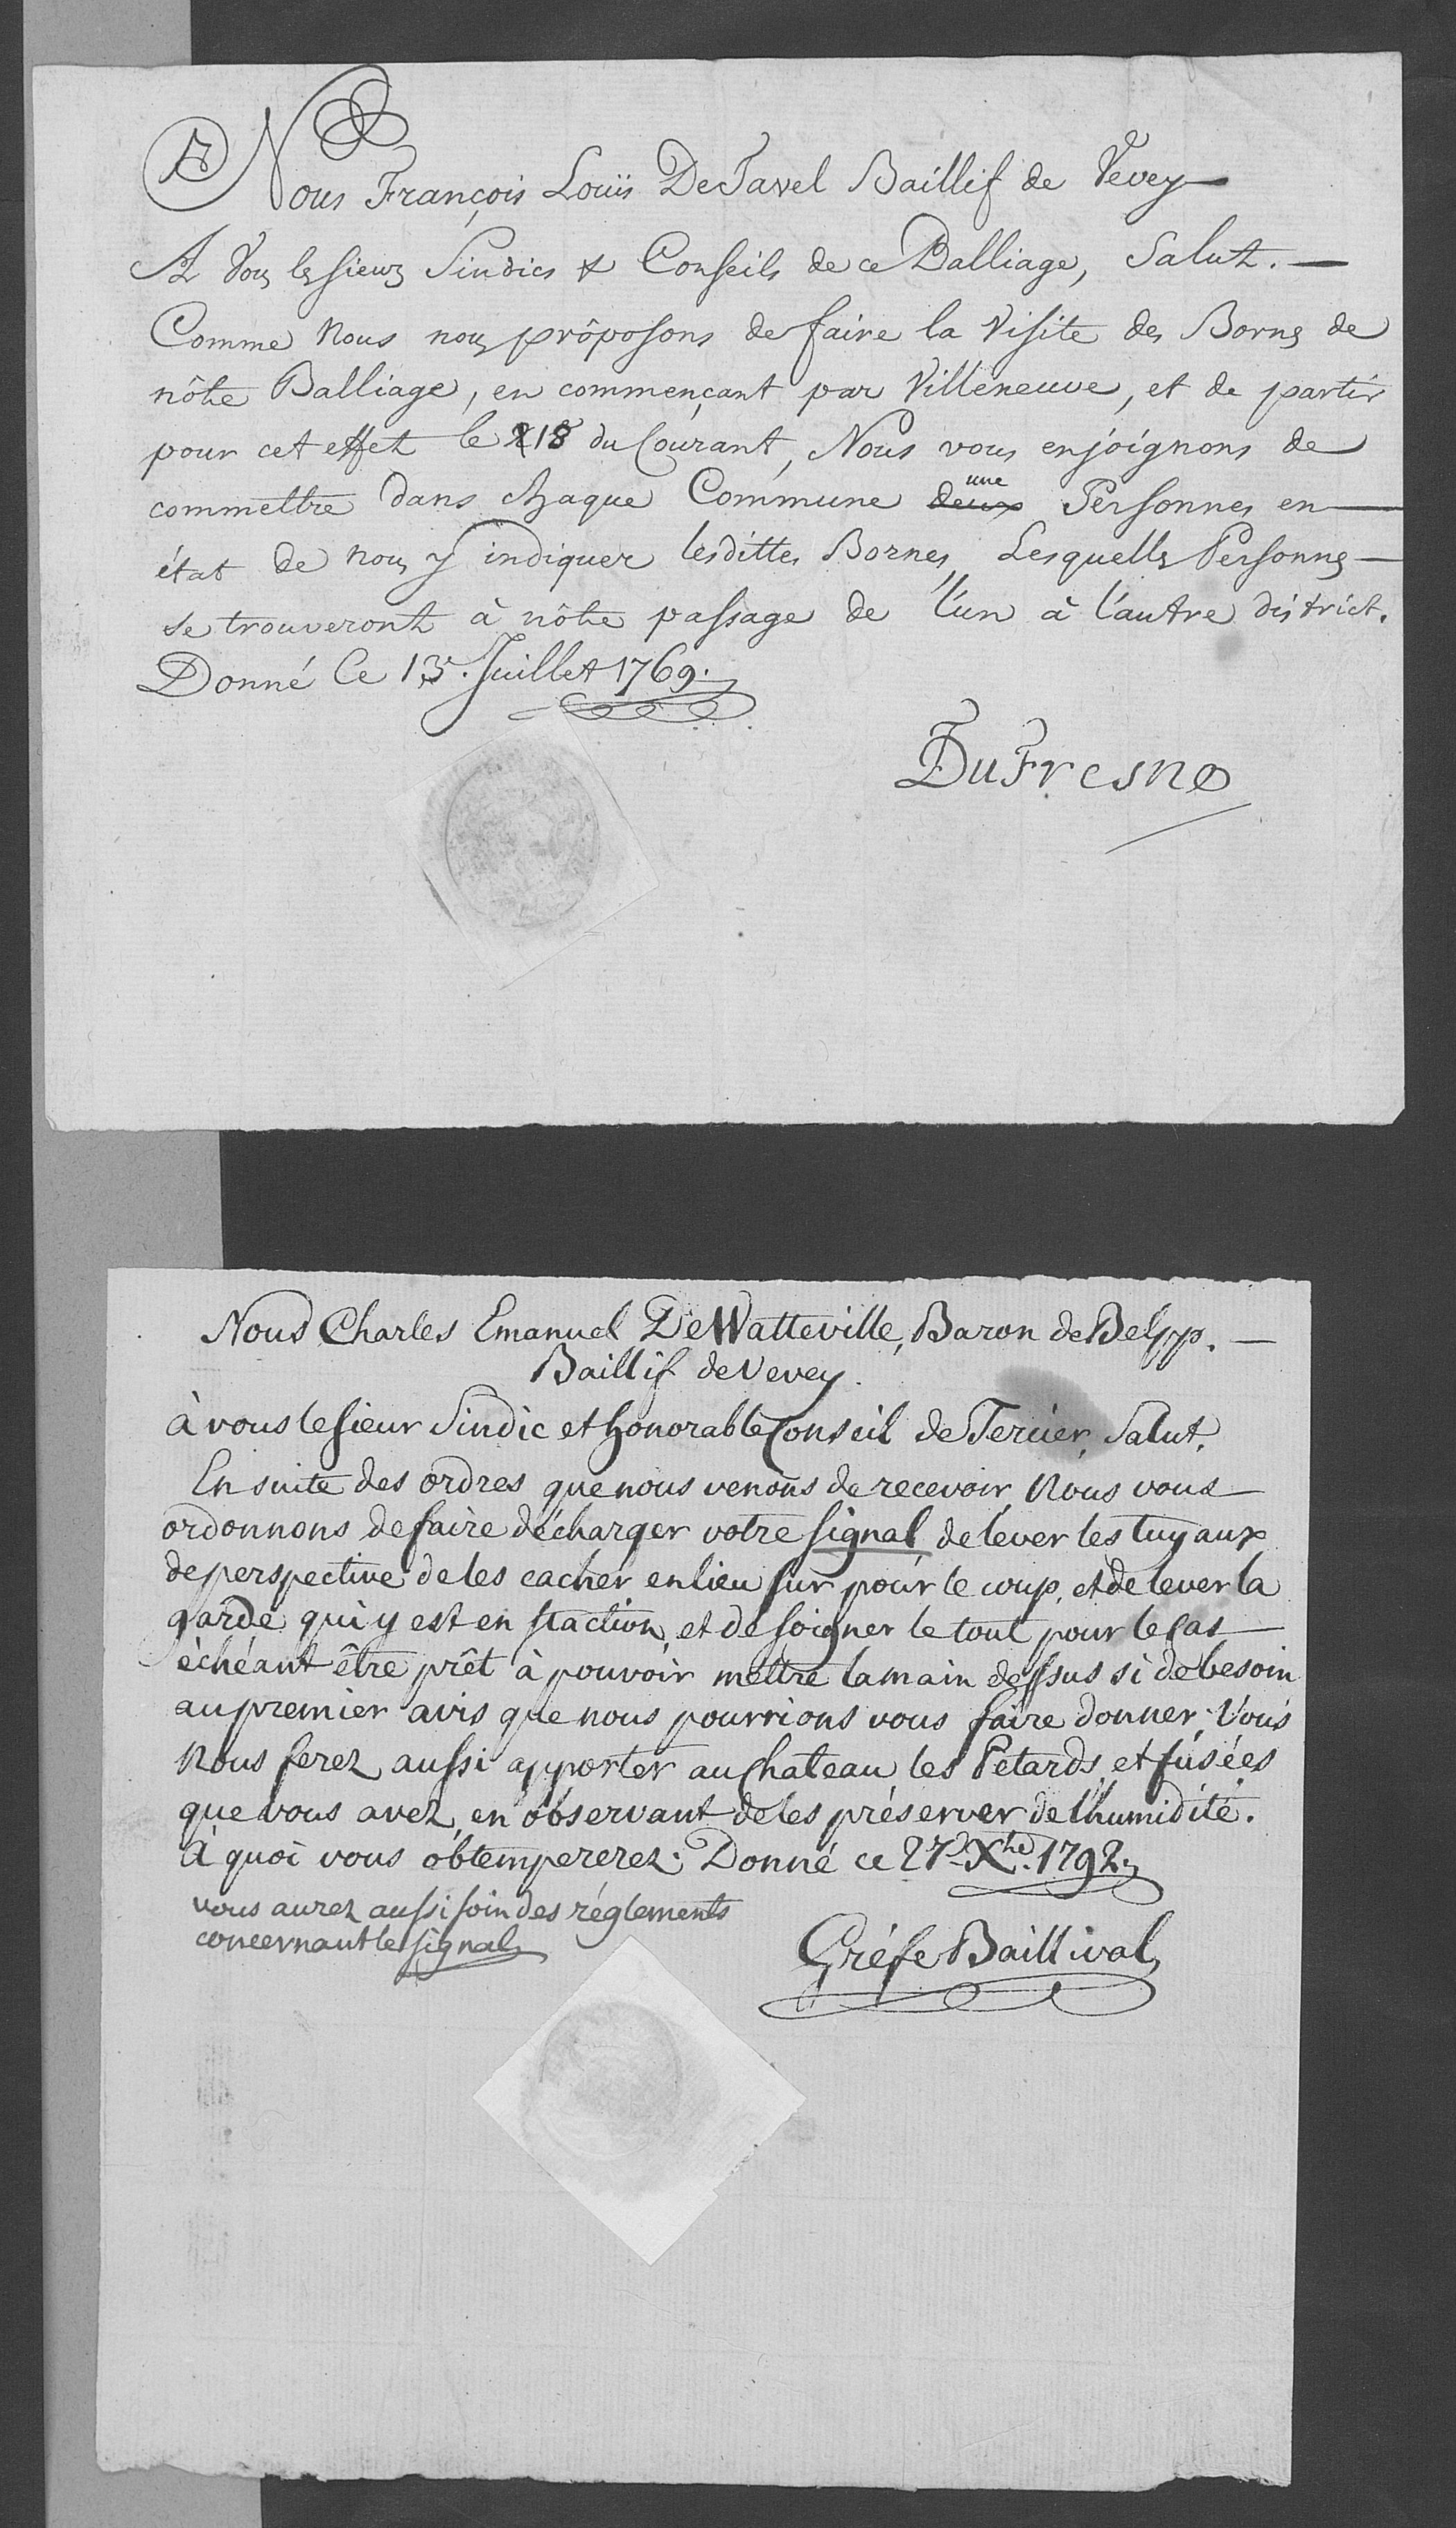 Nous François Louïs DeTavel Baillif de Vevey
A Vous les sieurs Sindics & Conseils de ce Balliage, Salut.
Comme Nous nous prôposons de faire la Visite des Bornes de
nôtre Balliage, en commençant par Villeneuve, et de partir
pour cet effet le 18 du Courant, Nous vous enjoignons de
commettre dans chaque Commune deux une Personnes en
état de nous y indiquer lesdittes Bornes, Lesquelles Personnes
se trouveront à nôtre passage de l'un à l'autre district.
Donné Ce 13. Juillet 1769.
DuFresne
Nous Charles Emanuel DeWatteville, Baron de Belpp.
Baillif de Vevey.
à vous le sieur Sindic et honorable Conseil de Tercier, Salut.
En suite des ordres que nous venons de recevoir, Nous vous
ordonnons de faire décharger votre signal, de lever les tuyaux
de perspective de les cacher en lieu sur pour le coup, et de lever la
garde qui y est en staction, et de soigner le tout pour le cas
échéant être prêt à pouvoir mettre la main dessus si de besoin
au premier avis que nous pourrions vous faire donner, Vous
Nous ferez aussi apporter au Chateau les Petards et fusées
que vous avez, en observant de les préserver de l'humidité.
à quoi vous obtempererez. Donné ce 27e Xbre. 1792.
vous aurez aussi soin des réglements
concernant le signal
Gréfe Baillival